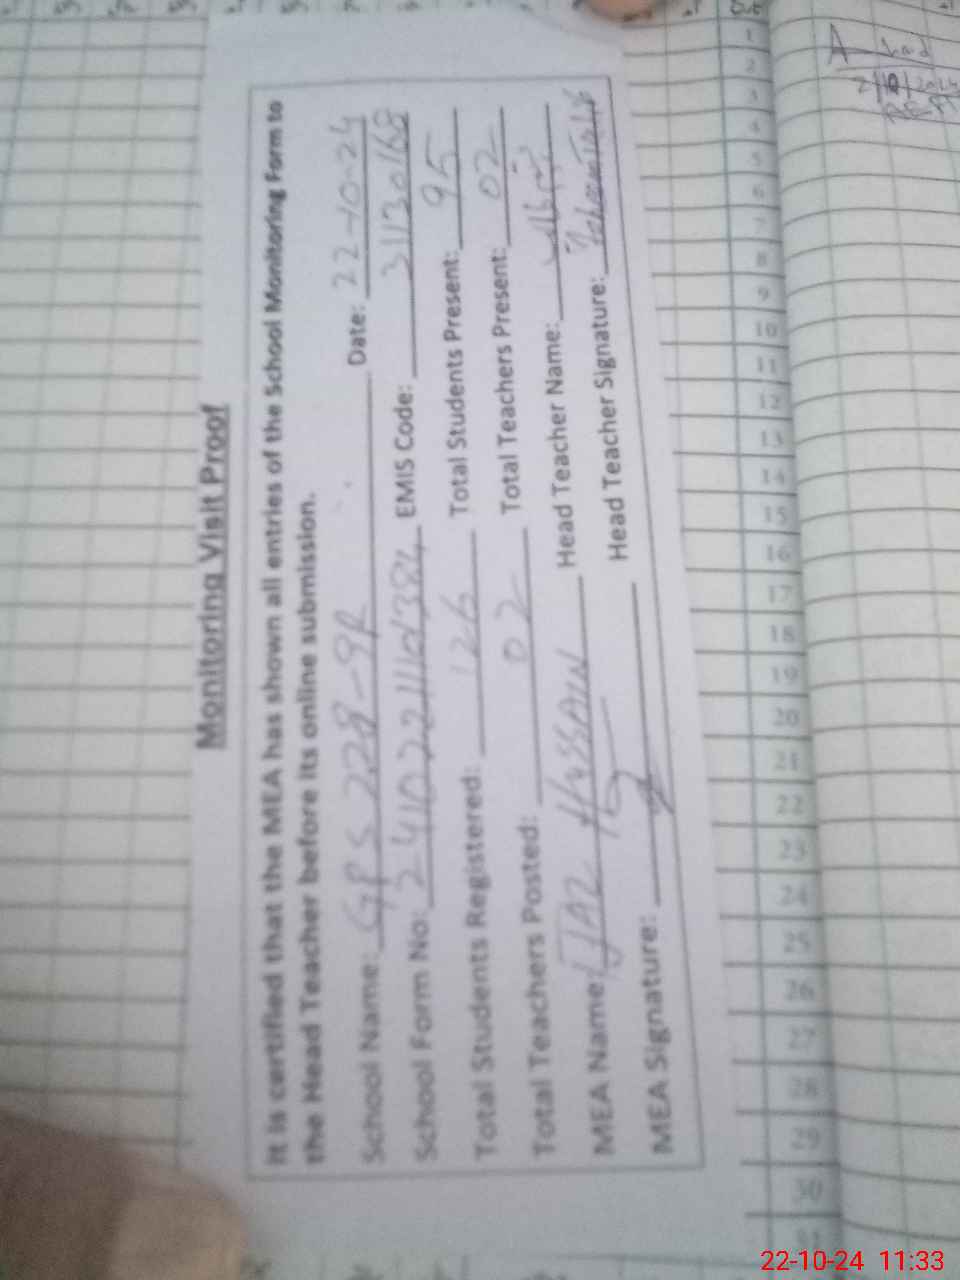 Monitoring Visit Proof
It is certified that the MEA has shown all entries of the School Monitoring Form to
the Head Teacher before its online submission.
School Name: GPS 228-9R Date: 22-10-24
School Form No: EMIS Code: 31130168
Total Students Registered: 126 Total Students Present: 95
Total Teachers Posted: 02 Total Teachers Present: 02
MEA Name: IJAZ HUSSAIN Head Teacher Name:
MEA Signature: Head Teacher Signature:
1
2
3
4
5
6
7
8
9
10
11
12
13
14
15
16
17
18
19
20
21
22
23
24
25
26
27
28
29
30
31
22-10-24 11:33